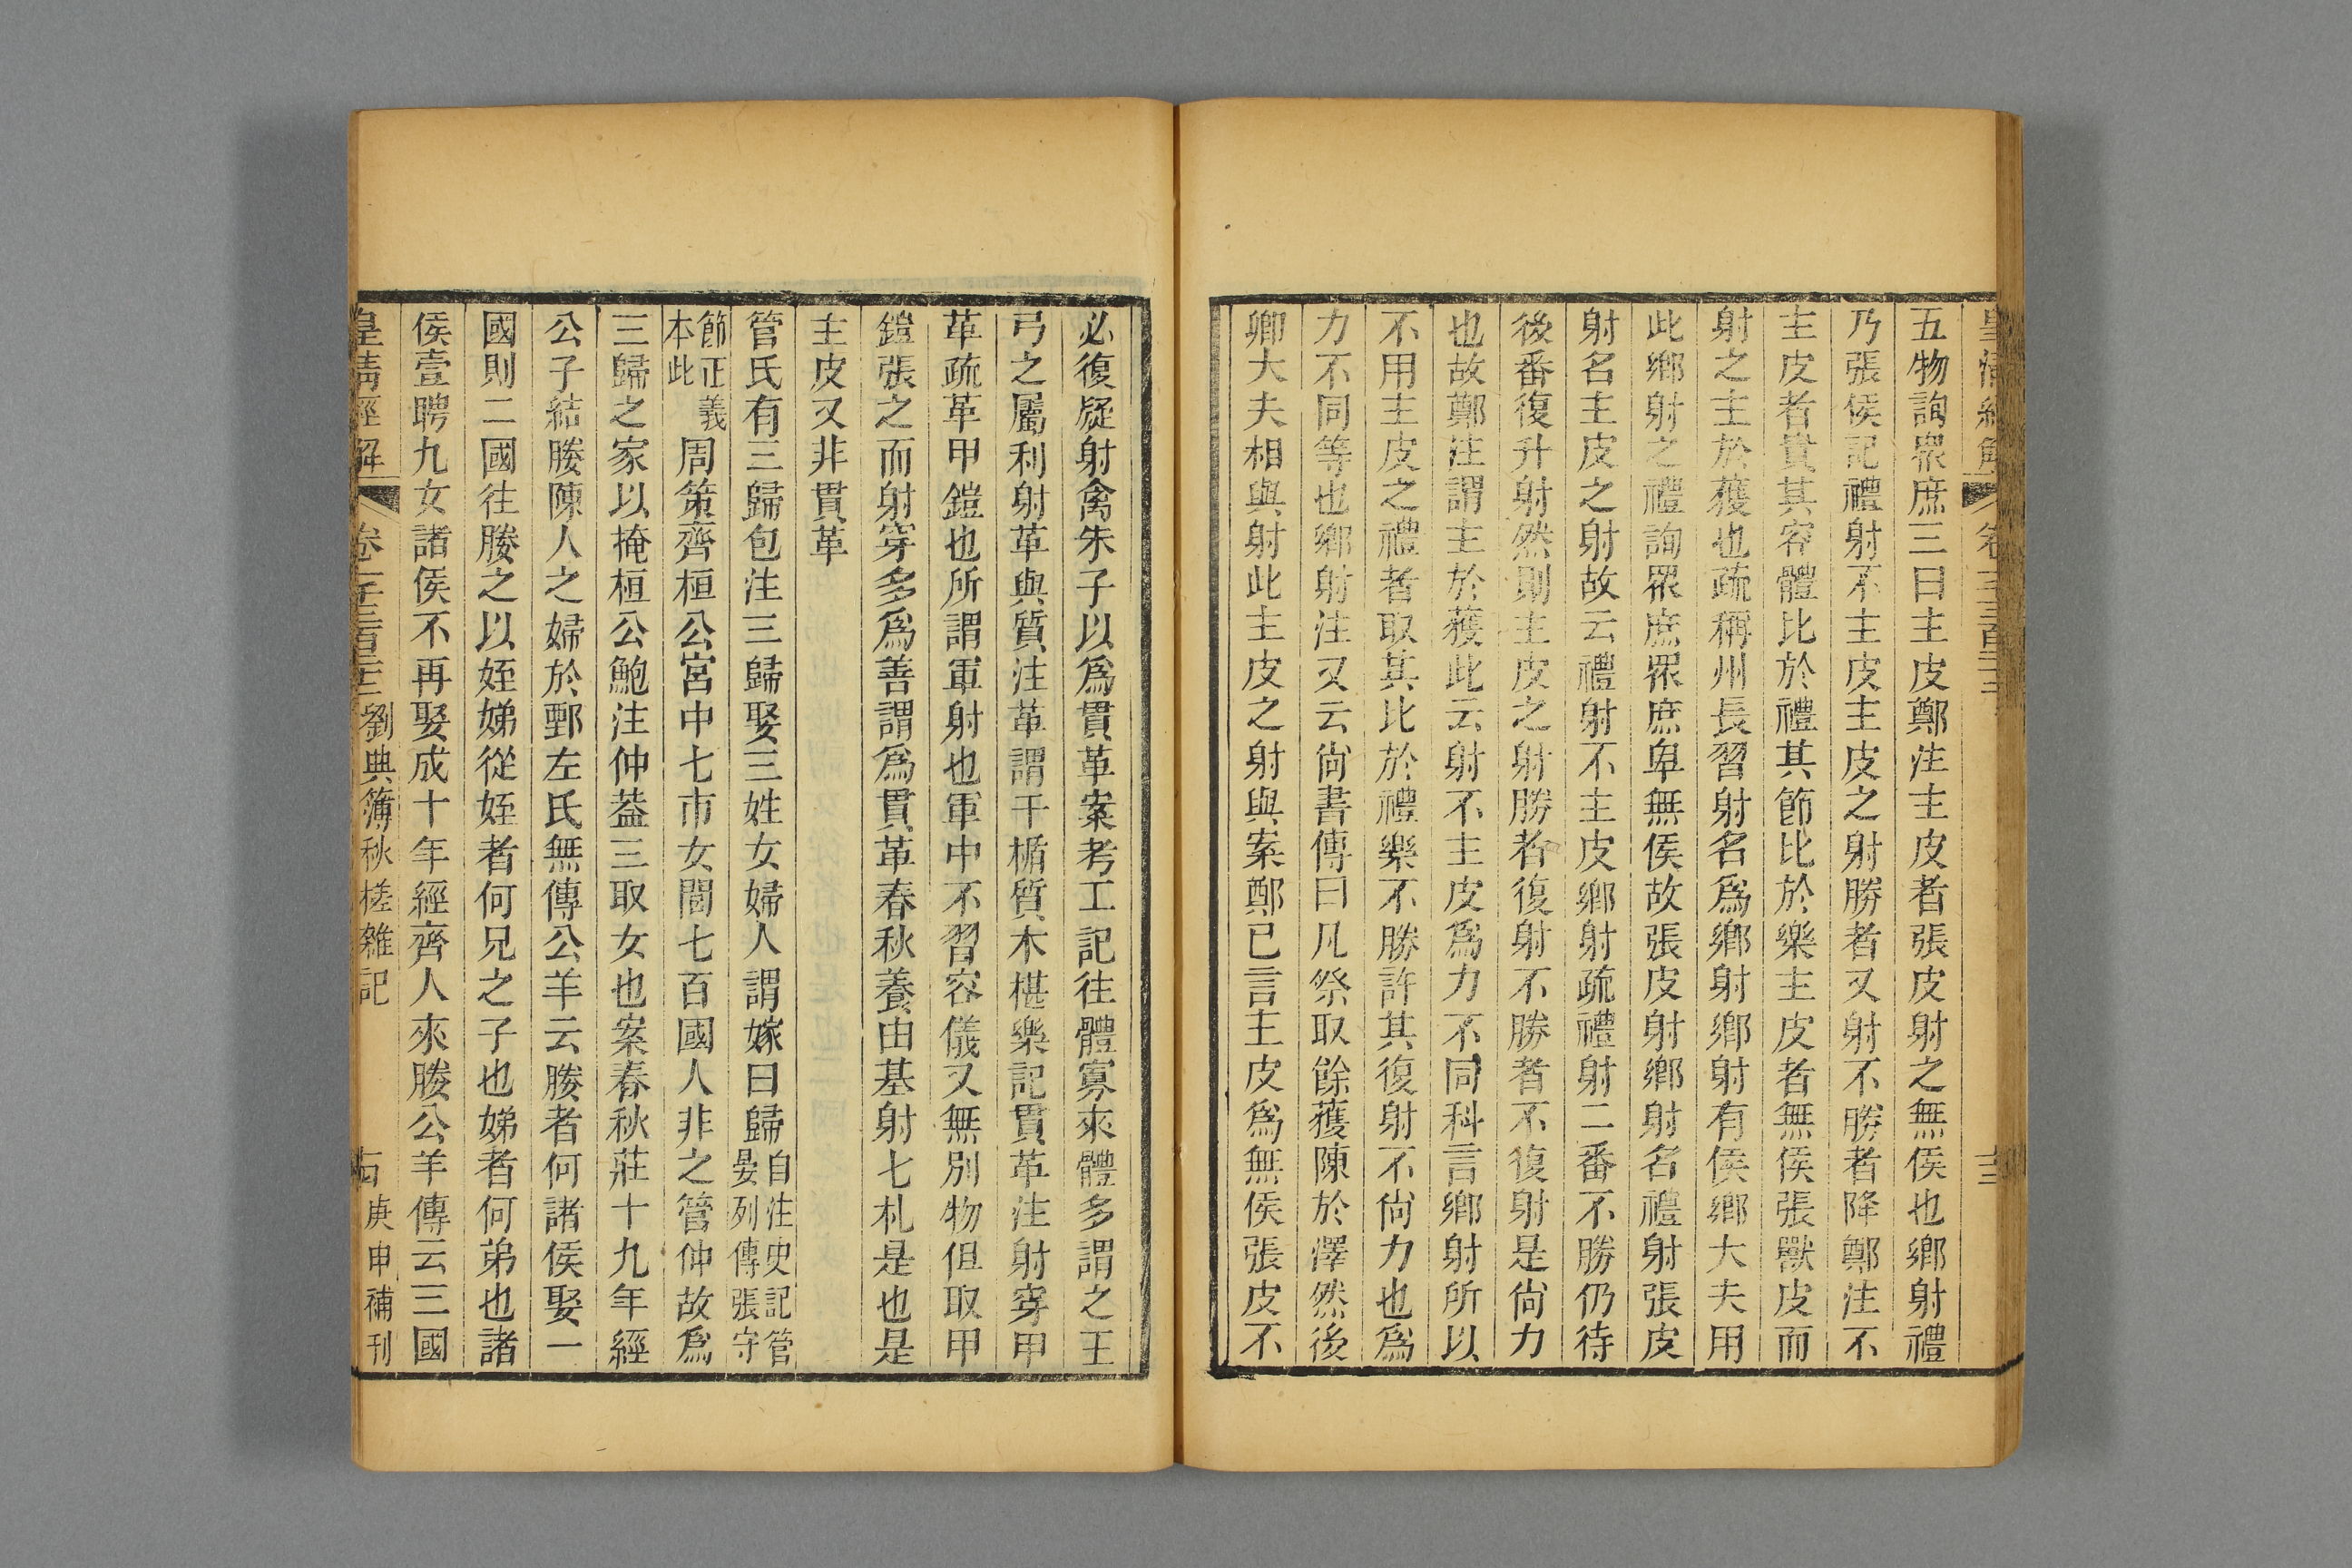 皇清經解 卷一千三百二十 十三
五物詢眾庶三曰主皮鄭注主皮者張皮射之無侯也鄉射禮
乃張侯記禮射不主皮主皮之射勝者又射不勝者降鄭注不
主皮者貴其容體比於禮其節比於樂主皮者無侯張獸皮而
射之主於獲也疏稱州長習射名爲鄉射鄉射有侯鄉大夫用
此鄉射之禮詢眾庶眾庶卑無侯故張皮射鄉射名禮射張皮
射名主皮之射故云禮射不主皮鄉射疏禮射二番不勝仍待
後番復升射然則主皮之射勝者復射不勝者不復射是尚力
也故鄭注謂主於獲此云射不主皮爲力不同科言鄉射所以
不用主皮之禮者取其比於禮樂不勝許其復射不尚力也爲
力不同等也鄉射注又云尚書傳曰凡祭取餘獲陳於澤然後
卿大夫相與射此主皮之射與案鄭已言主皮爲無侯張皮不
必復疑射禽朱子以爲貫革案考工記往體寡來體多謂之王
弓之屬利射革與質注革謂干楯質木椹樂記貫革注射穿甲
革疏革甲鎧也所謂軍射也軍中不習容儀又無別物但取甲
鎧張之而射穿多爲善謂爲貫革春秋養由基射七札是也是
主皮又非貫革
管氏有三歸包注三歸娶三姓女婦人謂嫁曰歸自注史記管晏列傳張守
節正義本此周策齊桓公宮中七市女閭七百國人非之管仲故爲
三歸之家以掩桓公鮑注仲葢三取女也案春秋莊十九年經
公子結媵陳人之婦於鄄左氏無傳公羊云媵者何諸侯娶一
國則二國往媵之以姪娣從姪者何兄之子也娣者何弟也諸
侯壹聘九女諸侯不再娶成十年經齊人來媵公羊傳云三國
皇清經解 卷一千三百二十 劉典簿秋槎雜記 十四 庚申補刊